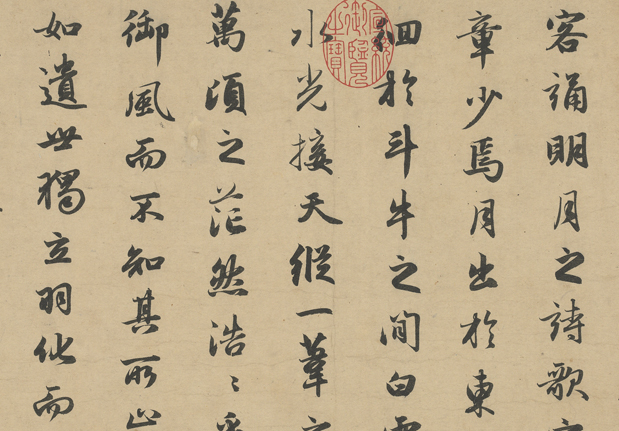 客誦明月之詩歌
章少焉月出於東
徊於斗牛之間白
水光接天縱一葦
萬頃之茫然浩〻
御風而不知其所止
如遺世獨立羽化而
宣統御覽之寶